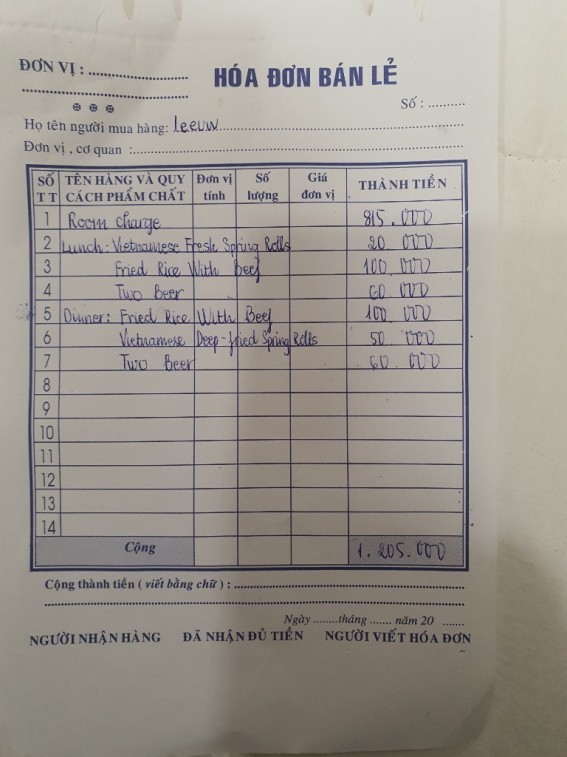 ĐƠN VỊ : ........................
HÓA ĐƠN BÁN LẺ
Số : ..........
Họ tên người mua hàng: leeuw
Đơn vị , cơ quan :
SỐ TT TÊN HÀNG VÀ QUY CÁCH PHẨM CHẤT Đơn vị tính Số lượng Giá đơn vị THÀNH TIỀN
1 Room charge 815.000
2 Lunch: Vietnamese Fresh Spring Rolls 20 000
3 Fried Rice With Beef 100.000
4 Two Beer 60 000
5 Dinner: Fried Rice With Beef 100 000
6 Vietnamese Deep-fried Spring Rolls 50 000
7 Two Beer 60 000
8
9
10
11
12
13
14
Cộng 1.205.000
Cộng thành tiền ( viết bằng chữ ) :
Ngày ........tháng ....... năm 20 ......
NGƯỜI NHẬN HÀNG ĐÃ NHẬN ĐỦ TIỀN NGƯỜI VIẾT HÓA ĐƠN